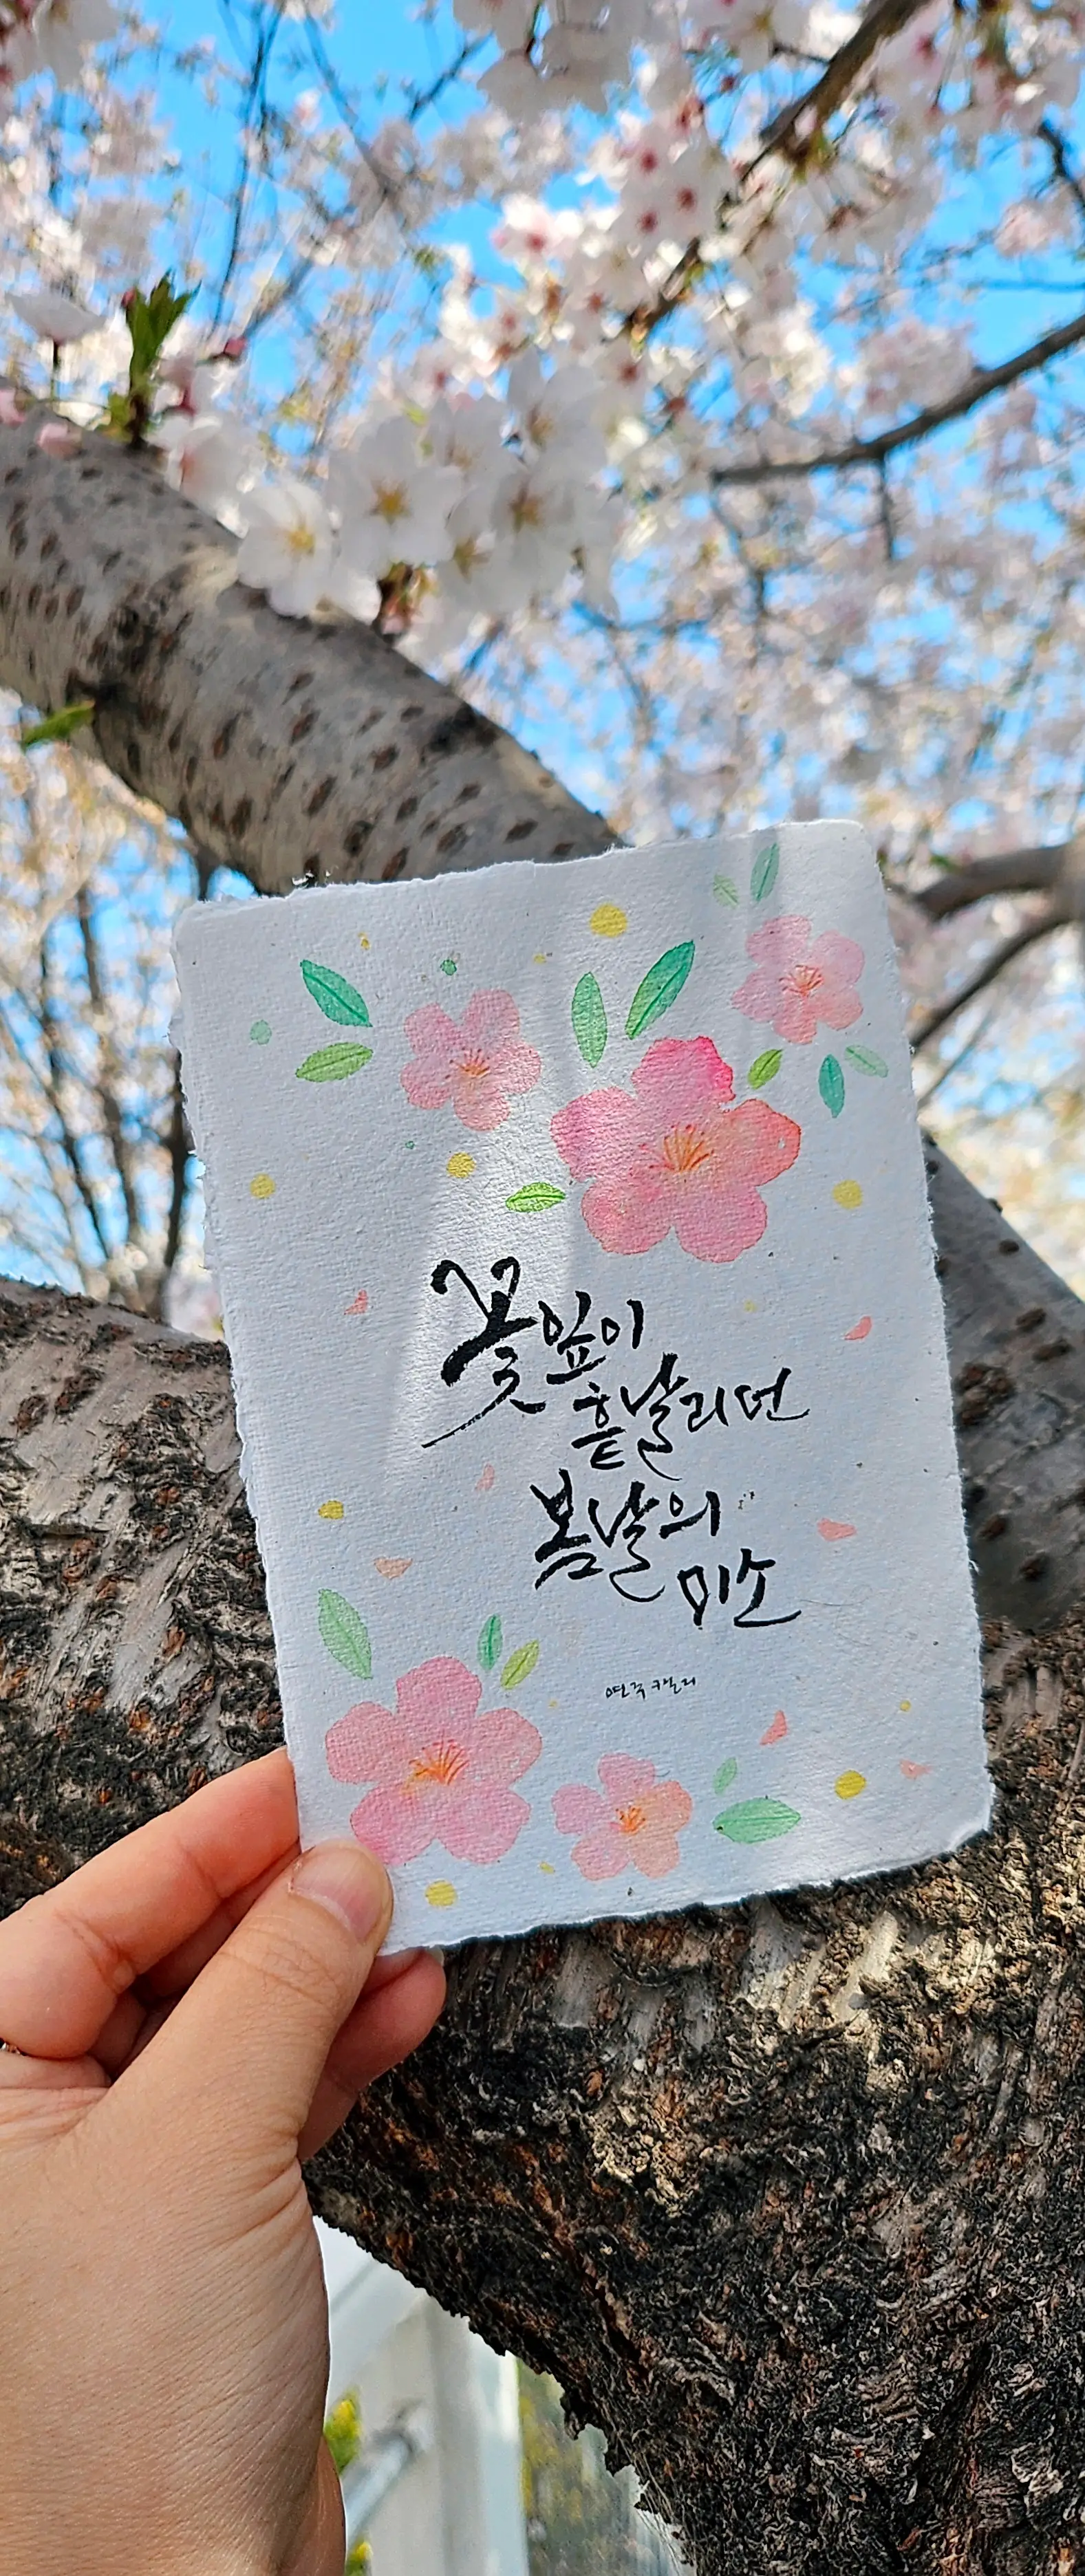 꽃잎이
흩날리던
봄날의
미소
연주캘리